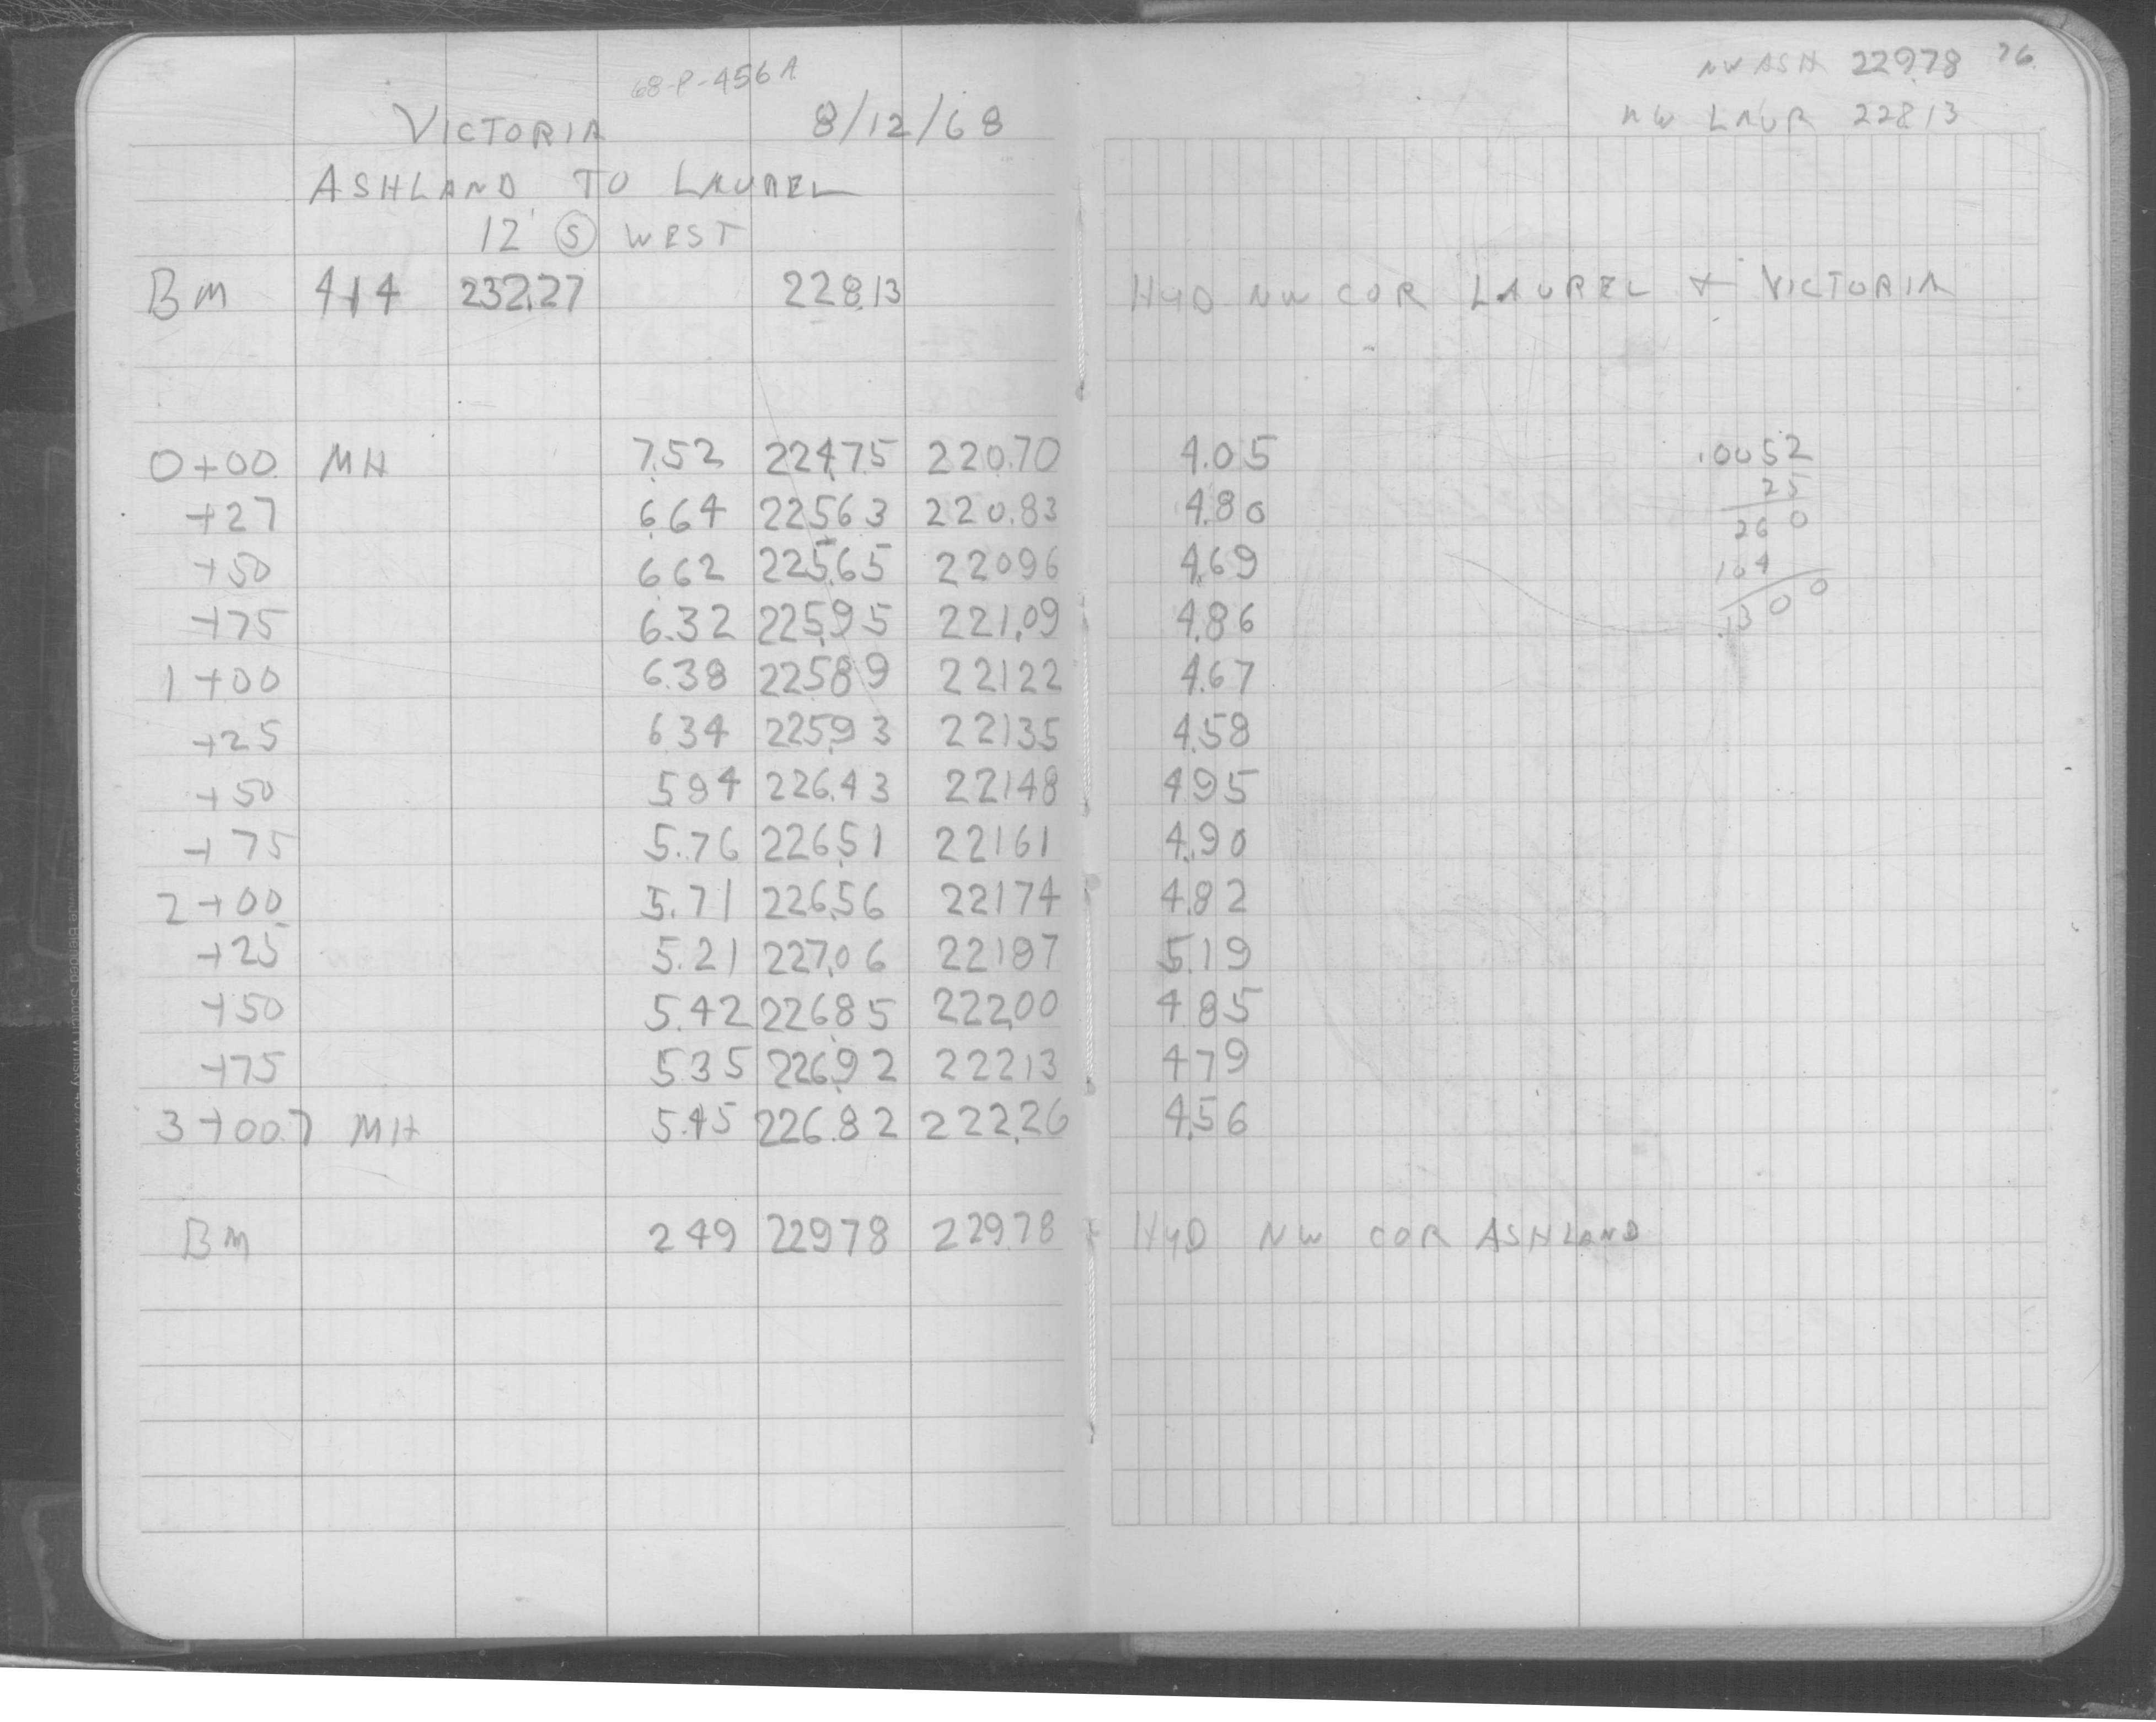 68-P-456A
VICTORIA 8/12/68
ASHLAND TO LAUREL
12' S WEST
BM 4.14 232.27 228.13
0+00 MH 7.52 224.75 220.70
+27 6.64 225.63 220.83
+50 6.62 225.65 220.96
+75 6.32 225.95 221.09
1+00 6.38 225.89 221.22
+25 6.34 225.93 221.35
+50 5.84 226.43 221.48
+75 5.76 226.51 221.61
2+00 5.71 226.56 221.74
+25 5.21 227.06 221.87
+50 5.42 226.85 222.00
+75 5.35 226.92 222.13
3+00.7 MH 5.45 226.82 222.26
BM 2.49 229.78 229.78
NW ASH 229.78 76
NW LAUR 228.13
HYD NW COR LAUREL + VICTORIA
4.05
4.80
4.69
4.86
4.67
4.58
4.95
4.90
4.82
5.19
4.85
4.79
4.56
.0052
25
260
104
.1300
HYD NW COR ASHLAND